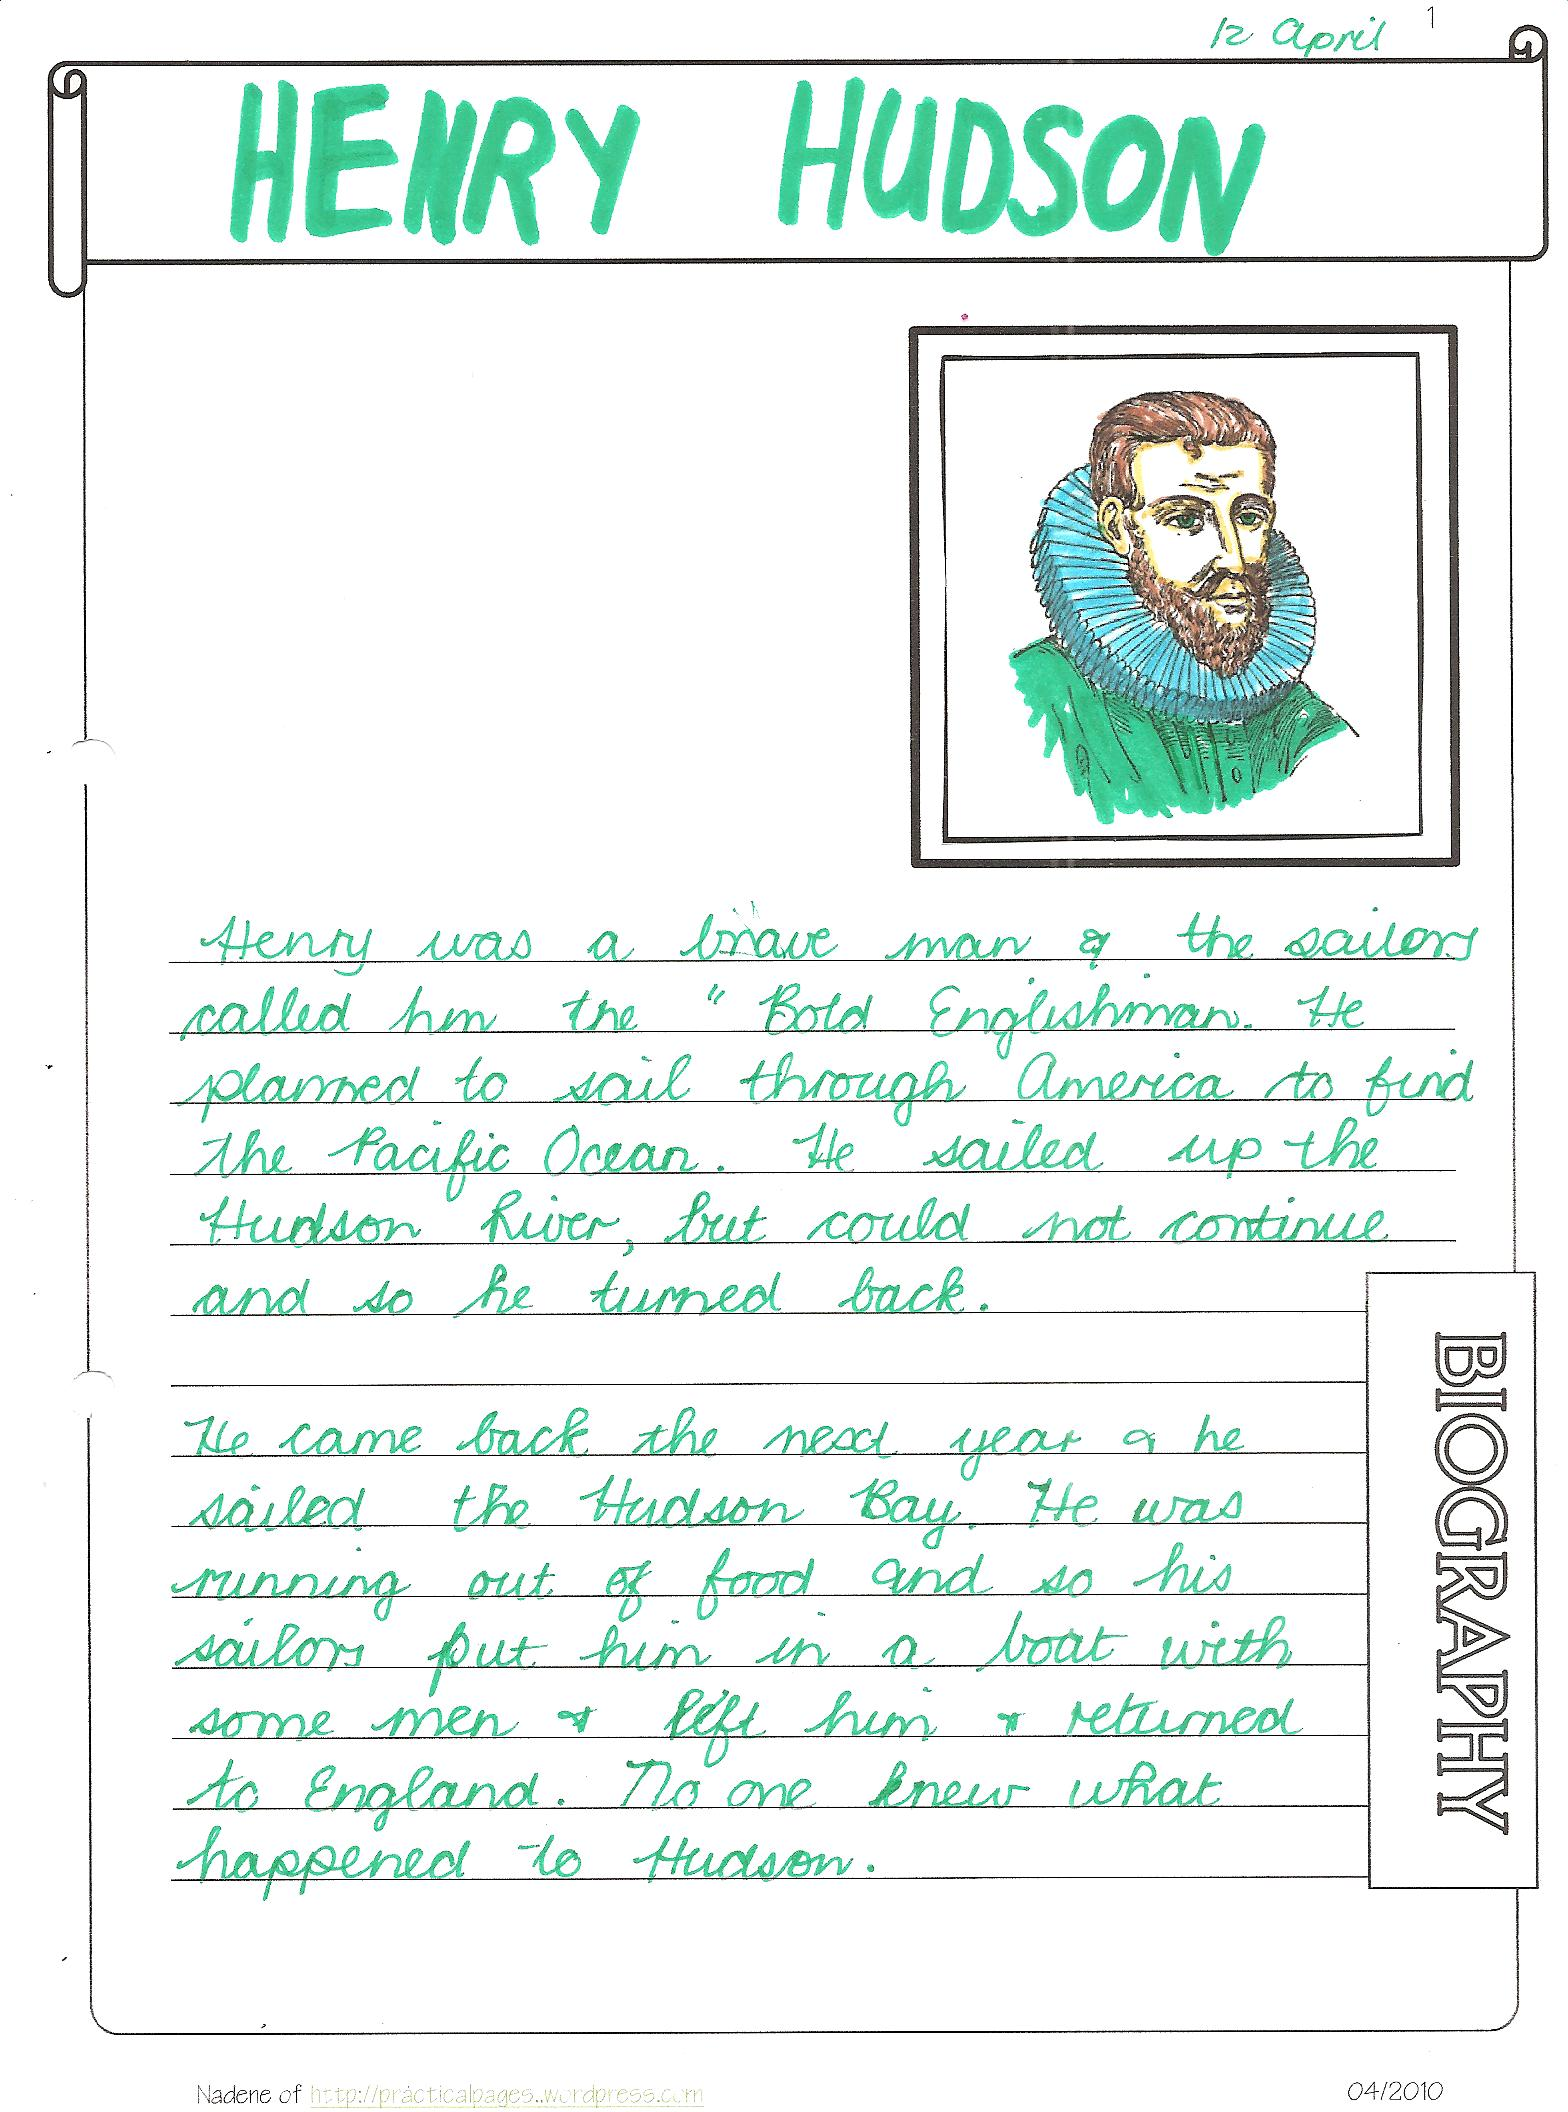 12 April
1
HENRY HUDSON
Henry was a brave man & the sailors
called him the " Bold Englishman. He
planned to sail through America to find
the Pacific Ocean. He sailed up the
Hudson River, but could not continue
and so he turned back.
He came back the next year & he
sailed the Hudson Bay. He was
running out of food and so his
sailors put him in a boat with
some men & left him & returned
to England. No one knew what
happened to Hudson.
BIOGRAPHY
Nadene of http://practicalpages.wordpress.com
04/2010